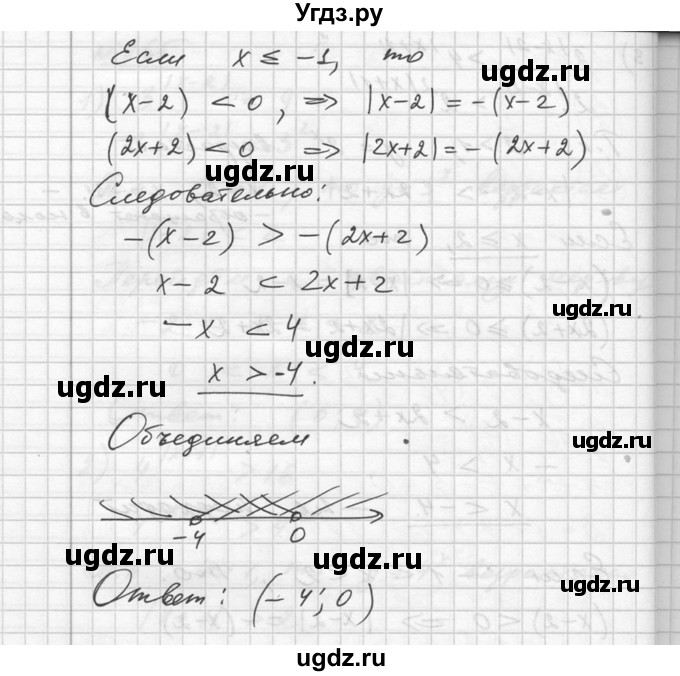 Угдз.ру
Если x ≤ -1, то
(x-2) < 0, => |x-2| = -(x-2)
(2x+2) < 0 => |2x+2| = -(2x+2)
Следовательно:
-(x-2) > -(2x+2)
x-2 < 2x+2
-x < 4
x > -4.
Объединяем
-4 0
Ответ: (-4; 0)
ugdz.ru
ugdz.ru
ugdz.ru
ugdz.ru
ugdz.ru
ugdz.ru
ugdz.ru
ugdz.ru
ugdz.ru
ugdz.ru
ugdz.ru